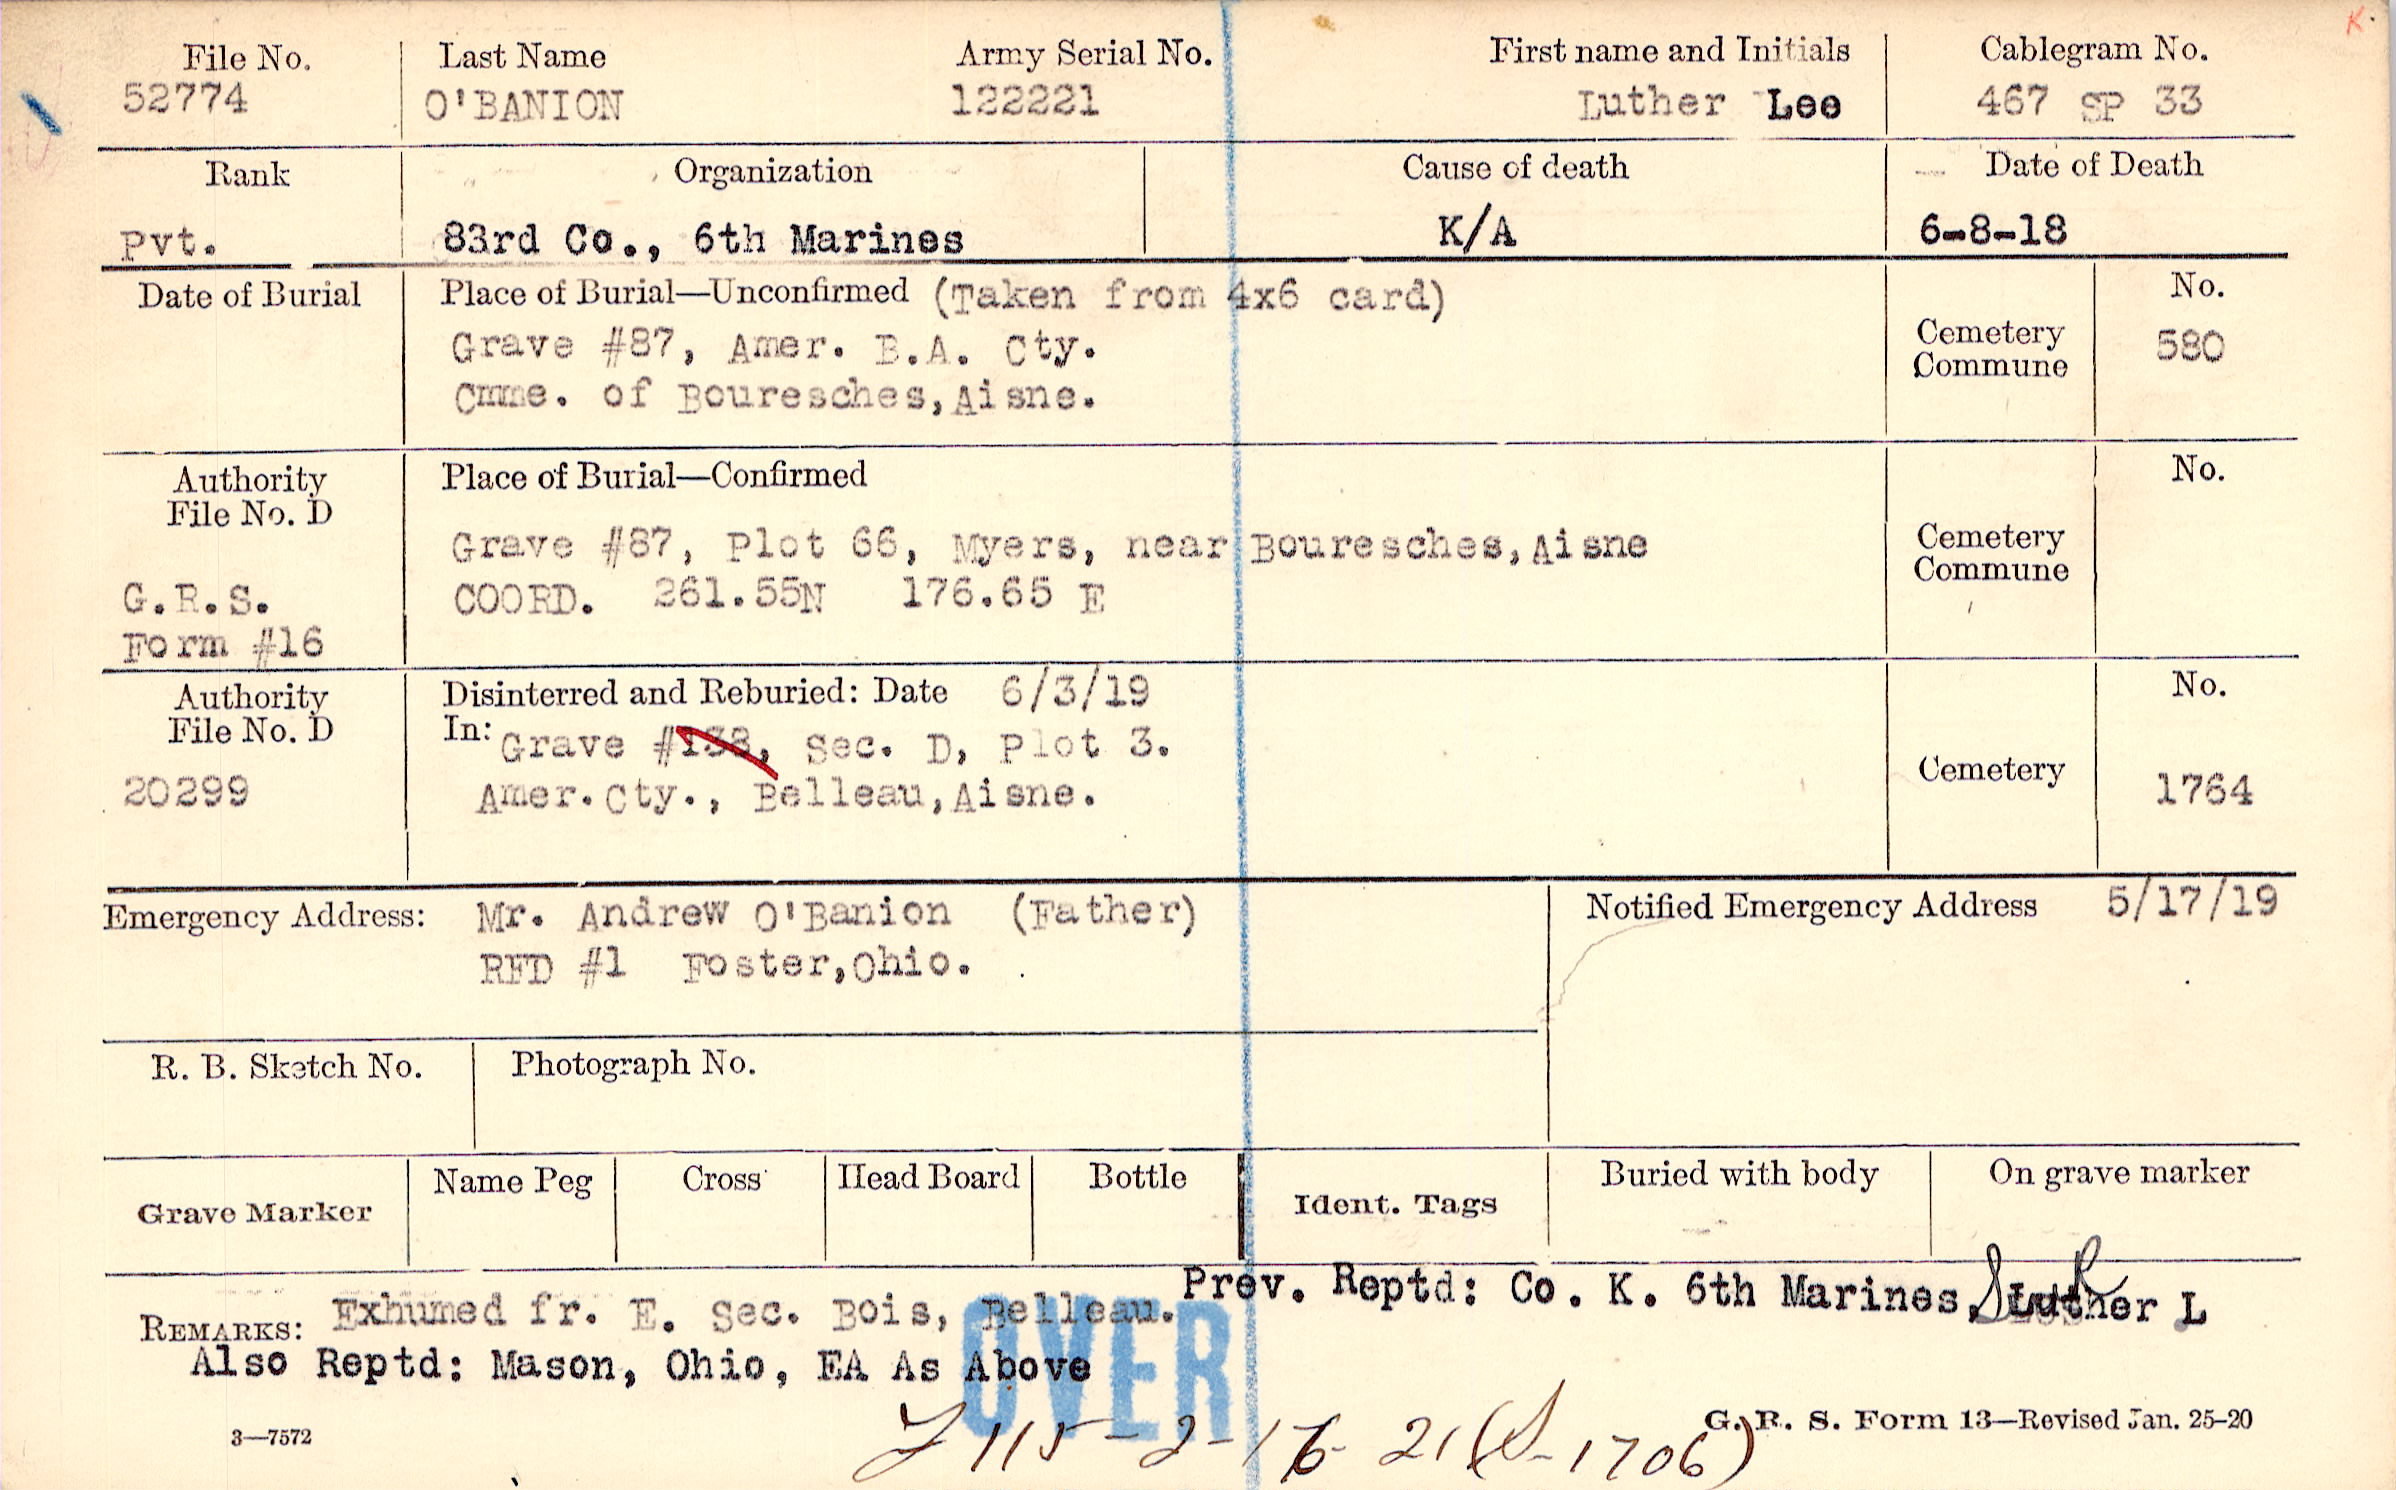 K.
File No. Last Name Army Serial No. First name and Initials Cablegram No.
52774 O'BANION 122221 Luther Lee 467 SP 33
Rank Organization Cause of death Date of Death
Pvt. 83rd Co., 6th Marines K/A 6-8-18
Date of Burial Place of Burial—Unconfirmed (Taken from 4x6 card) No.
Grave #87, Amer. B.A. Cty. Cemetery Commune 580
Cmme. of Bouresches,Aisne.
Authority File No. D Place of Burial—Confirmed No.
Grave #87, Plot 66, Myers, near Bouresches,Aisne Cemetery Commune
G.R.S. COORD. 261.55N 176.65 E
Form #16
Authority File No. D Disinterred and Reburied: Date 6/3/19 No.
In: Grave #138, Sec. D, Plot 3.
20299 Amer.Cty., Belleau,Aisne. Cemetery 1764
Emergency Address: Mr. Andrew O'Banion (Father) Notified Emergency Address 5/17/19
RFD #1 Foster,Ohio.
R. B. Sketch No. Photograph No.
Grave Marker Name Peg Cross Head Board Bottle Ident. Tags Buried with body On grave marker
REMARKS: Exhumed fr. E. Sec. Bois, Belleau. Prev. Reptd: Co. K. 6th Marines, Luther L
Also Reptd: Mason, Ohio, EA As Above
OVER
3—7572 G. R. S. Form 13—Revised Jan. 25-20
115-2-16-21 (S-1706)